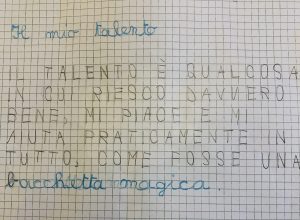 Il mio talento
IL TALENTO È QUALCOSA
IN CUI RIESCO DAVVERO
BENE, MI PIACE E MI
AIUTA PRATICAMENTE IN
TUTTO, COME FOSSE UNA
bacchetta magica.